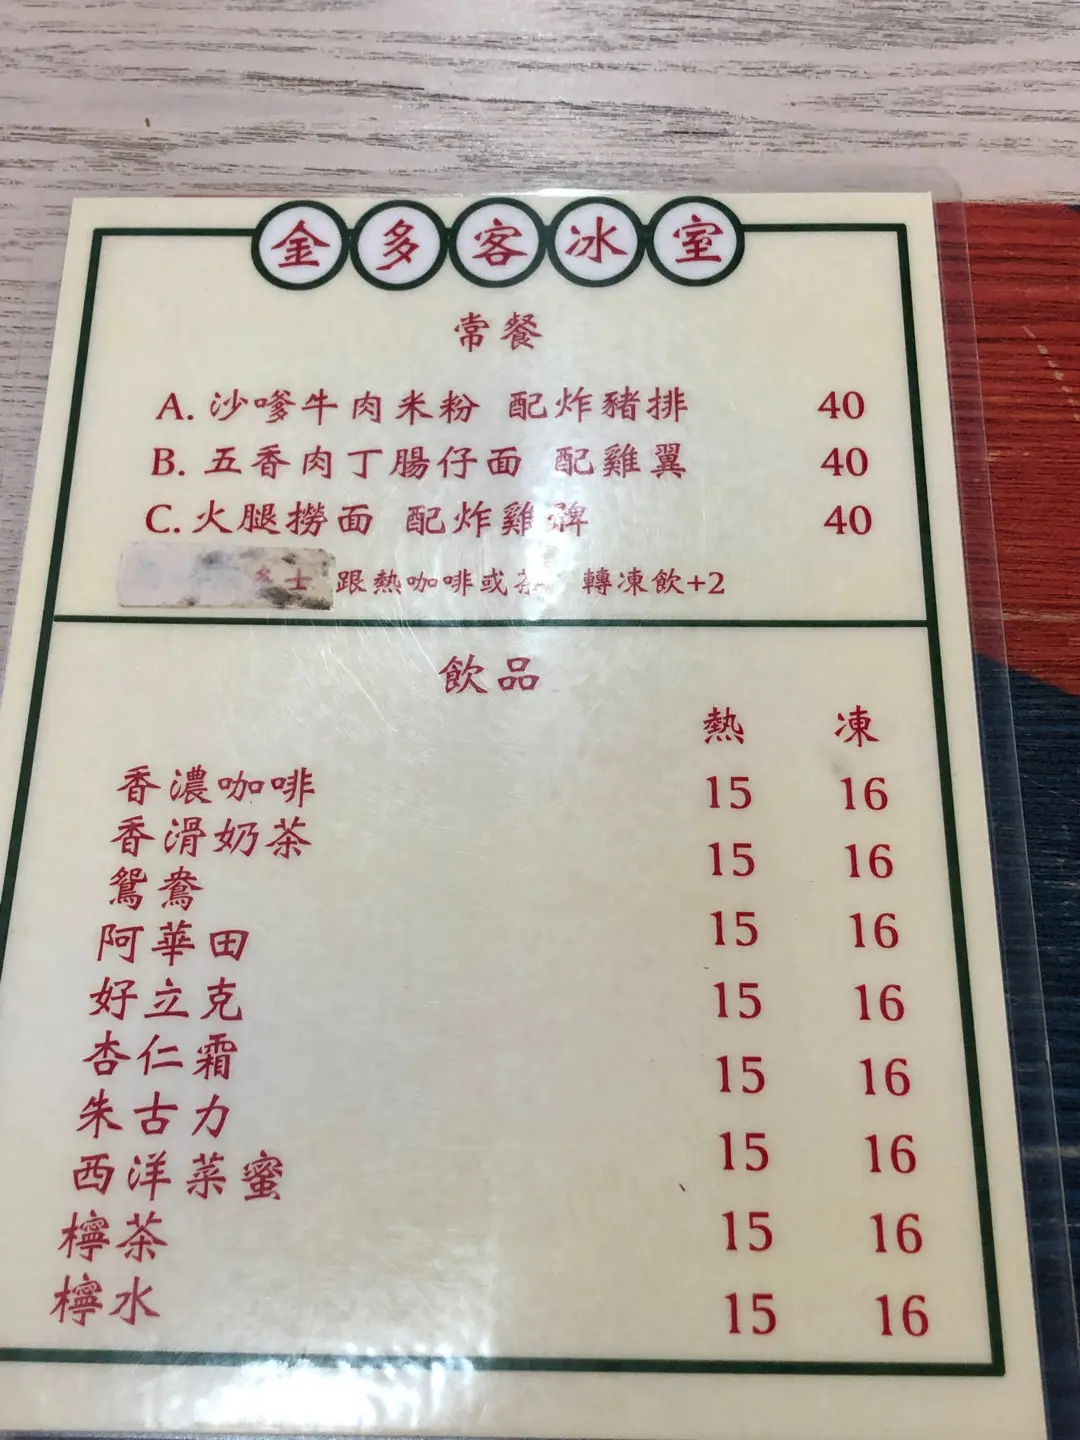 金多客冰室
常餐
A. 沙嗲牛肉米粉 配炸豬排 40
B. 五香肉丁腸仔面 配雞翼 40
C. 火腿撈面 配炸雞髀 40
多士 跟熱咖啡或茶 轉凍飲+2
飲品
熱 凍
香濃咖啡 15 16
香滑奶茶 15 16
鴛鴦 15 16
阿華田 15 16
好立克 15 16
杏仁霜 15 16
朱古力 15 16
西洋菜蜜 15 16
檸茶
檸水